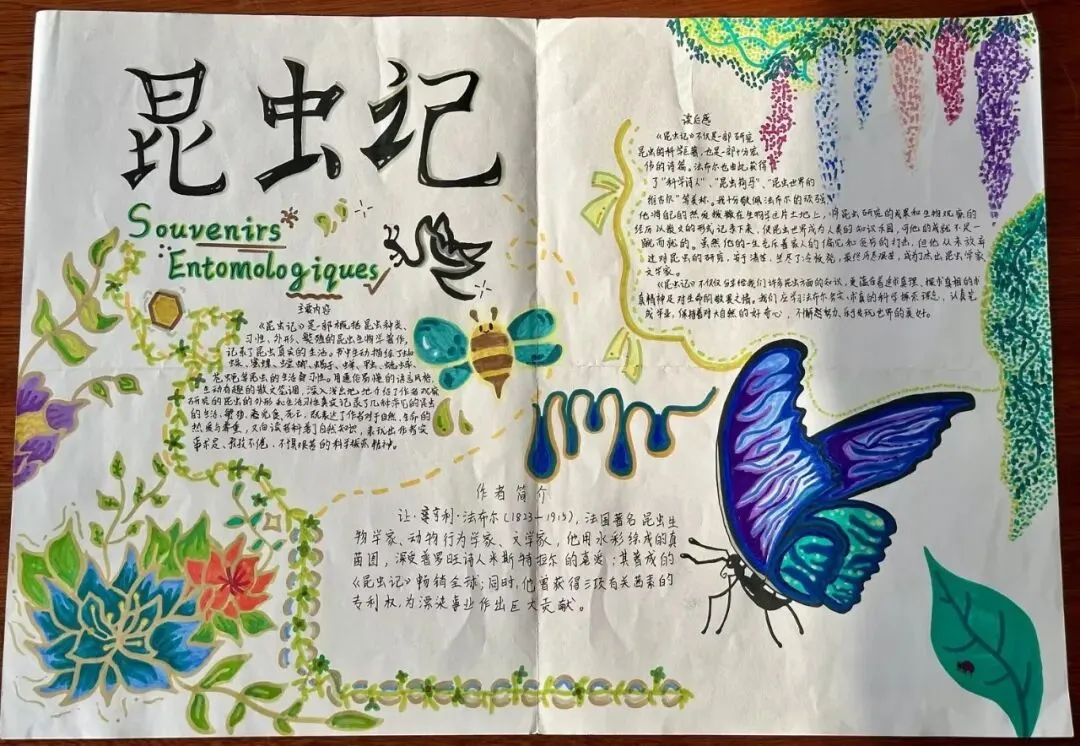 昆虫记
Souvenirs
Entomologiques
主要内容
《昆虫记》是一部概括昆虫种类、
习性、外形、繁殖的昆虫生物学著作,
记录了昆虫真实的生活。书中生动描绘了
蜜蜂、螳螂、蝎子、蝉、
昆虫的生活习性。用通俗易懂的语言风格,
生动有趣的散文笔调,深入浅出地
研究的昆虫的外形
的生活,繁殖,
热爱与尊重,又向读者科普了自然知识,表现出作者实
事求是、孜孜不倦、不惧艰苦的科学探索精神。
作者简介
让·亨利·法布尔(1823—1915),法国著名昆虫生
物学家、动物行为学家、文学家,他用水彩绘成的真
菌图,深受普罗旺诗人米斯特拉尔的喜爱;其著成的
《昆虫记》畅销全球;同时,他曾获得三项有关茜素的
专利权,为漂染事业作出巨大贡献。
读后感
《昆虫记》不仅是一部研究
昆虫的科学巨著,也是一部十分宏
伟的诗篇。法布尔也由此获得
了“科学诗人”、“昆虫荷马”、“昆虫世界的
维吉尔”等美称。我十分敬佩法布尔的顽强,
他将自己的热爱在生物学这片土地上,将昆虫研究的成果和生物观察的
经历以散文的形式记录下来,使昆虫世界成为人类的知识乐园,可他的成就不是一
蹴而就的。虽然他的一生充斥着家人的偏见和贫穷的打击,但他从未放弃
过对昆虫的研究,安于清苦,成为了杰出昆虫学家,
文学家。
《昆虫记》不仅仅分享给我们许多昆虫方面的知识,更蕴含着追求真理、探求真相的求
真精神及对生命的敬畏之情。我们应学习法布尔务实、求真的科学探索理念,认真完
成学业,保持着对大自然的好奇心,不断努力,发现世界的美好。